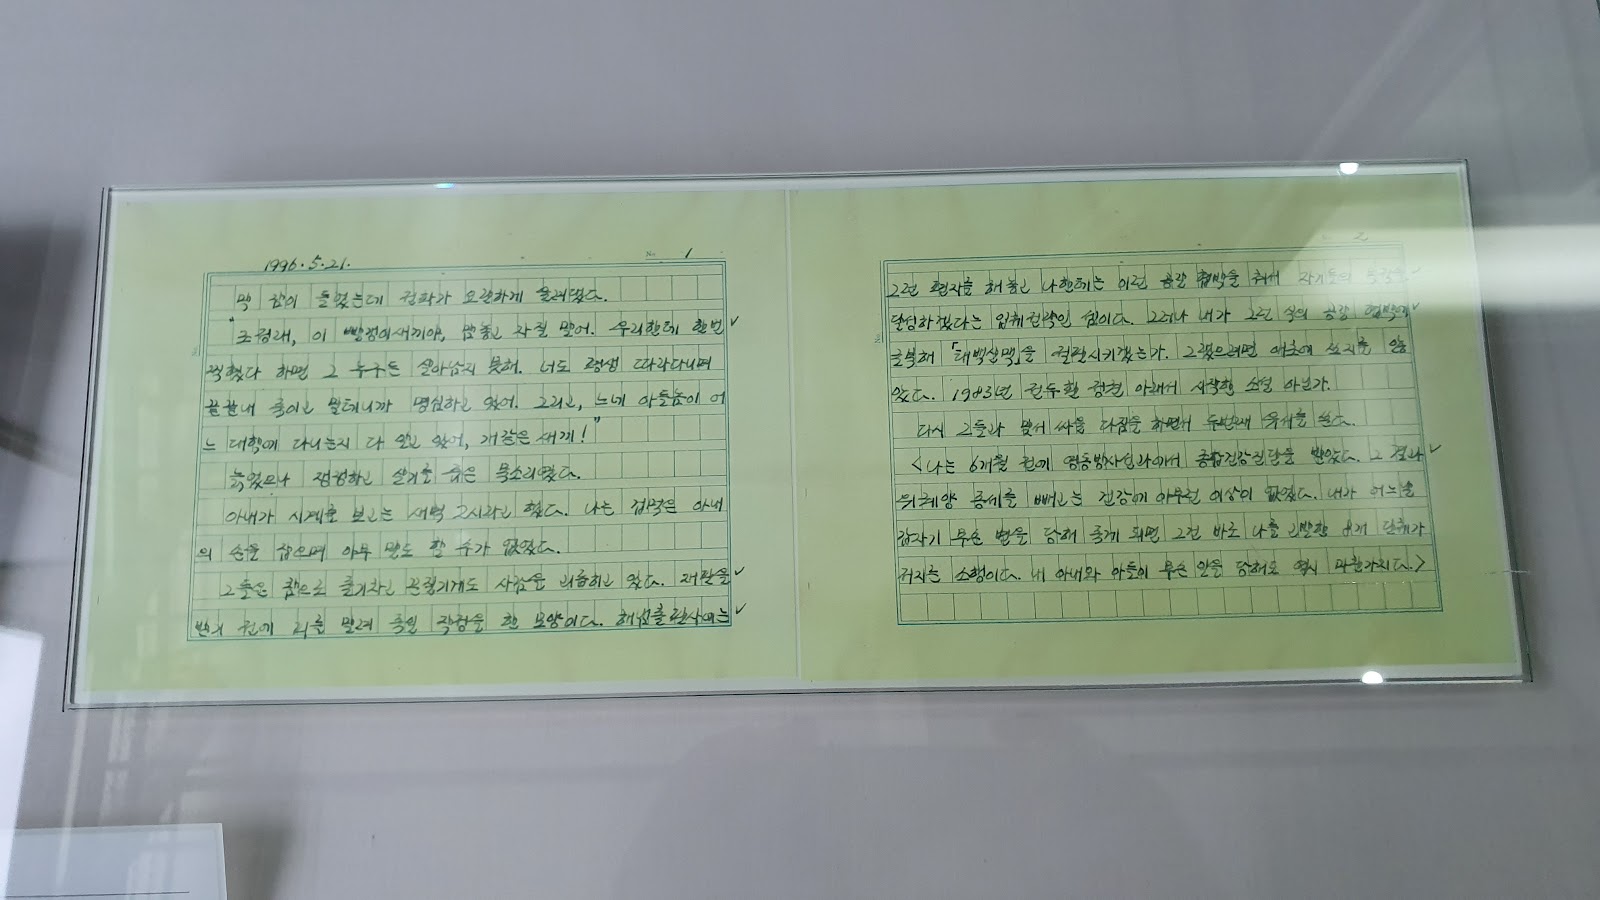 1996.5.21.
No 1
막 잠이 들었는데 전화가 요란하게 울려댔다.
"조정래, 이 빨갱이새끼야, 맘놓고 자질 말어. 우리한테 한번
찍혔다 하면 그 누구든 살아남지 못해. 너도 평생 따라다니며
끝끝내 죽이고 말테니까 명심하고 있어. 그리고, 느네 아들놈이 어
느 대학에 다니는지 다 알고 있어, 개같은 새끼!"
늙었으나 쩡쩡하고 살기를 품은 목소리였다.
아내가 시계를 보고는 새벽 2시라고 했다. 나는 겁먹은 아내
의 손을 잡으며 아무 말도 할 수가 없었다.
그들은 참으로 줄기차고 끈질기게도 사람을 괴롭히고 있다. 재판을
받기 전에 피를 말려 죽일 작정을 한 모양이다. 해섬출판사에는
2
그런 편지를 해놓고 나한테는 이런 공갈 협박을 해서 자기들의 목적을
달성하겠다는 입체전략인 셈이다. 그러나 내가 그런 식의 공갈 협박에
굴복해 「태백산맥」을 절판시키겠는가. 그랬으려면 애초에 쓰지를 않
았다. 1983년 전두환 정권 아래서 시작한 소설 아닌가.
다시 그들과 맞서 싸울 다짐을 하면서 두번째 유서를 쓴다.
<나는 6개월 전에 영동방사선과에서 종합건강진단을 받았다. 그 결과
위궤양 증세를 빼고는 건강에 아무런 이상이 없었다. 내가 어느날
갑자기 무슨 변을 당해 죽게 되면 그건 바로 나를 고발한 8개 단체가
저지른 소행이다. 내 아내와 아들이 무슨 일을 당해도 역시 마찬가지다.>